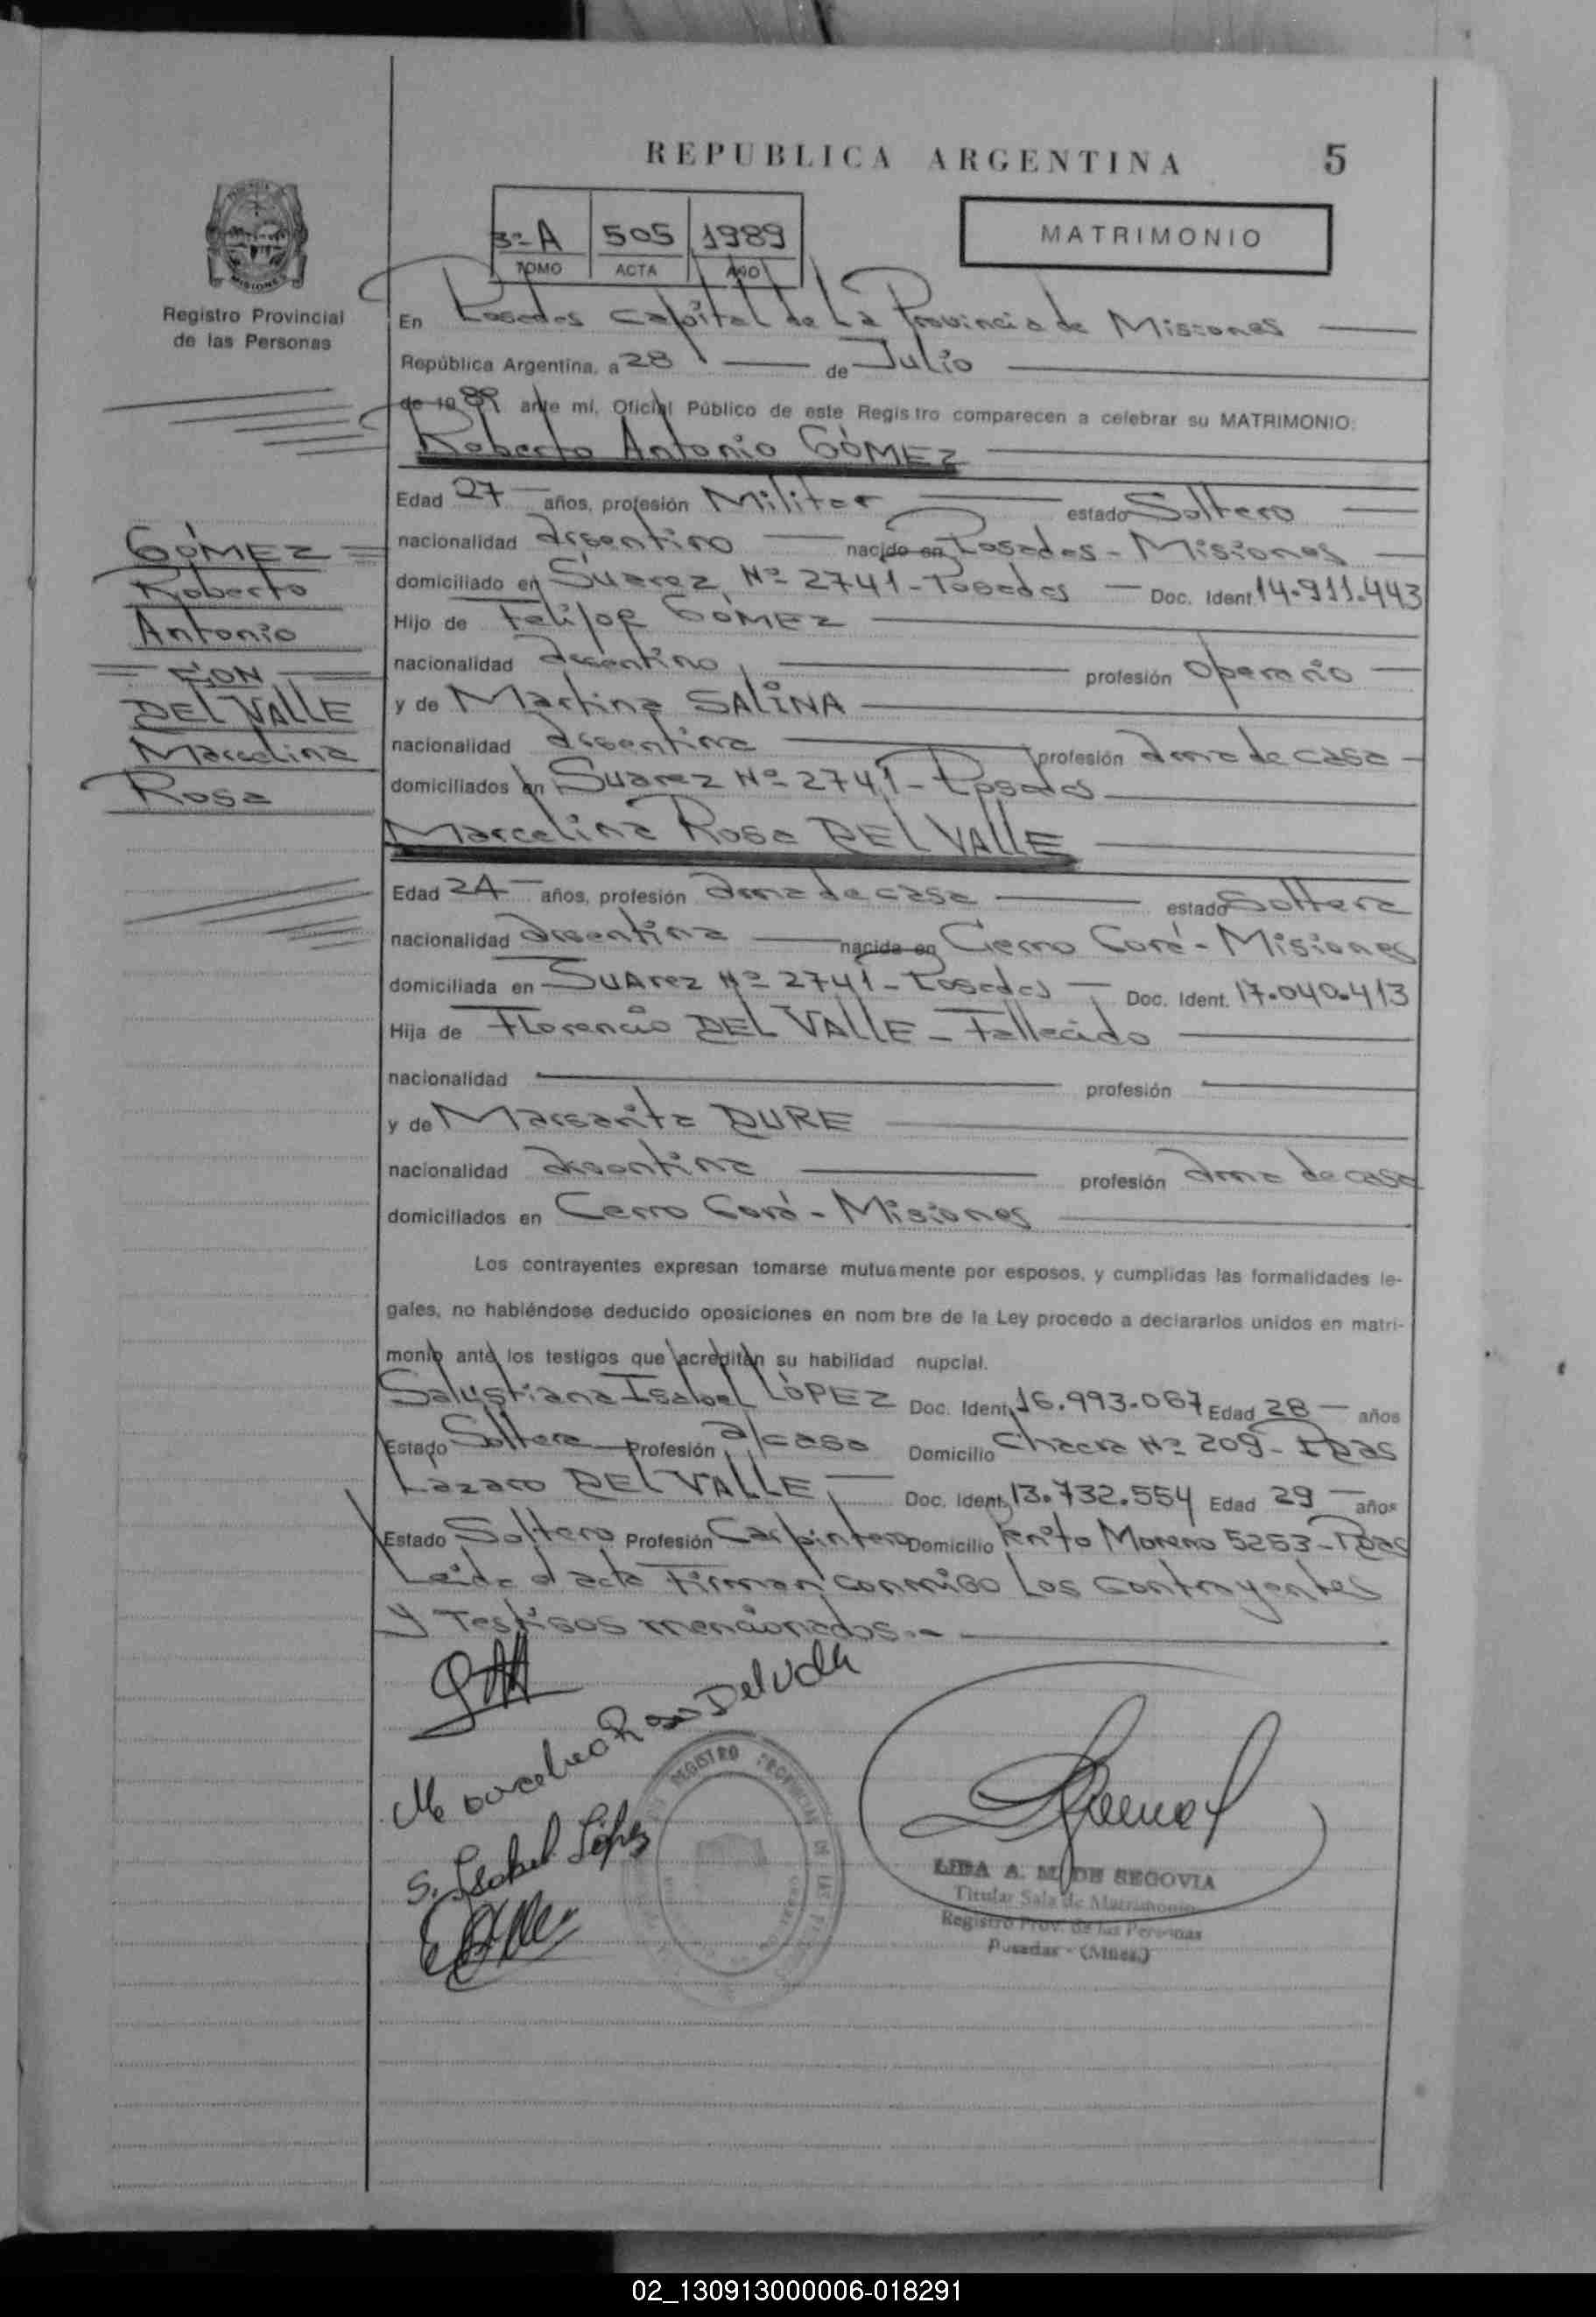 REPUBLICA ARGENTINA 5
3º A 505 1989
TOMO ACTA AÑO
MATRIMONIO
MISIONES
Registro Provincial
de las Personas
En Posadas Capital de La Provincia de Misiones
República Argentina, a 28 de Julio
de 1989 ante mí, Oficial Público de este Registro comparecen a celebrar su MATRIMONIO:
Roberto Antonio GÓMEZ
Edad 27 años, profesión Militar estado Soltero
nacionalidad argentino nacido en Posadas - Misiones
domiciliado en Suarez Nº 2741 - Posadas Doc. Ident. 14.911.443
Hijo de Felipe GÓMEZ
nacionalidad argentino profesión Operario
y de Martina SALINA
nacionalidad argentina profesión ama de casa
domiciliados en Suarez Nº 2741 - Posadas
Marcelina Rosa DEL VALLE
Edad 24 años, profesión ama de casa estado Soltera
nacionalidad argentina nacida en Cerro Corá - Misiones
domiciliada en Suarez Nº 2741 - Posadas Doc. Ident. 17.040.413
Hija de Florencio DEL VALLE - Fallecido
nacionalidad profesión
y de Margarita DURE
nacionalidad argentina profesión ama de casa
domiciliados en Cerro Corá - Misiones
Los contrayentes expresan tomarse mutuamente por esposos, y cumplidas las formalidades le-
gales, no habiéndose deducido oposiciones en nombre de la Ley procedo a declararlos unidos en matri-
monio ante los testigos que acreditan su habilidad nupcial.
Salustiana Isabel LÓPEZ Doc. Ident. 16.993.067 Edad 28 años
Estado Soltera Profesión a/casa Domicilio Chacra Nº 209 - Pdas
Lazaro DEL VALLE Doc. Ident. 13.732.554 Edad 29 años
Estado Soltero Profesión Carpintero Domicilio Perito Moreno 5253 - Pdas
Leida el acta Firman conmigo Los contrayentes
y Testigos mencionados.-
GÓMEZ
Roberto
Antonio
CON
DEL VALLE
Marcelina
Rosa
Marcelina Rosa Del Valle
S. Isabel López
REGISTRO PROVINCIAL DE LAS
LIDA A. M. DE SEGOVIA
Titular Sala de Matrimonio
Registro Prov. de las Personas
Posadas - (Mnes.)
02_130913000006-018291